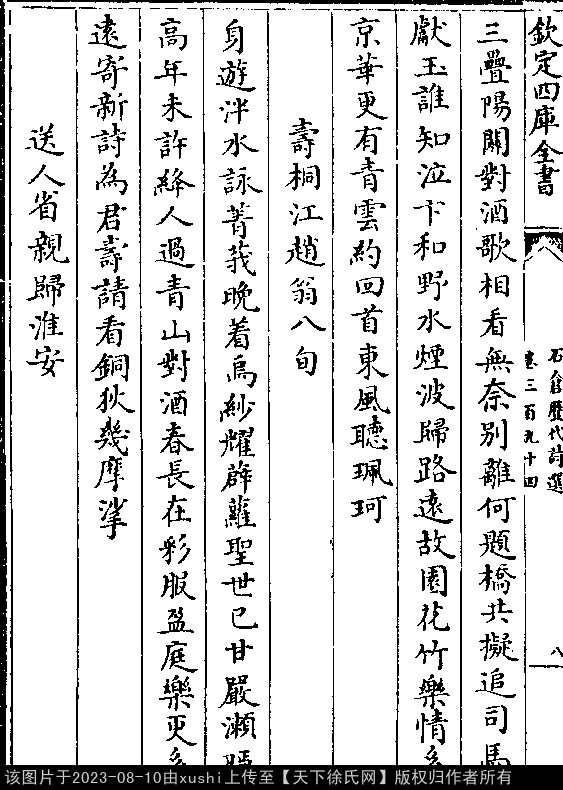 欽定四庫全書
石倉歷代詩選
卷三百九十四
八
三疊陽關對酒歌相看無奈別離何題橋共擬追司馬
獻玉誰知泣卞和野水煙波歸路遠故園花竹樂情多
京華更有青雲約回首東風聽珮珂
壽桐江趙翁八旬
身遊泮水詠菁莪晚着烏紗耀薜蘿聖世已甘嚴瀨
高年未許絳人過青山對酒春長在彩服盈庭樂更多
遠寄新詩為君壽請看銅狄幾摩挲
送人省親歸淮安
该图片于2023-08-10由xushi上传至【天下徐氏网】版权归作者所有